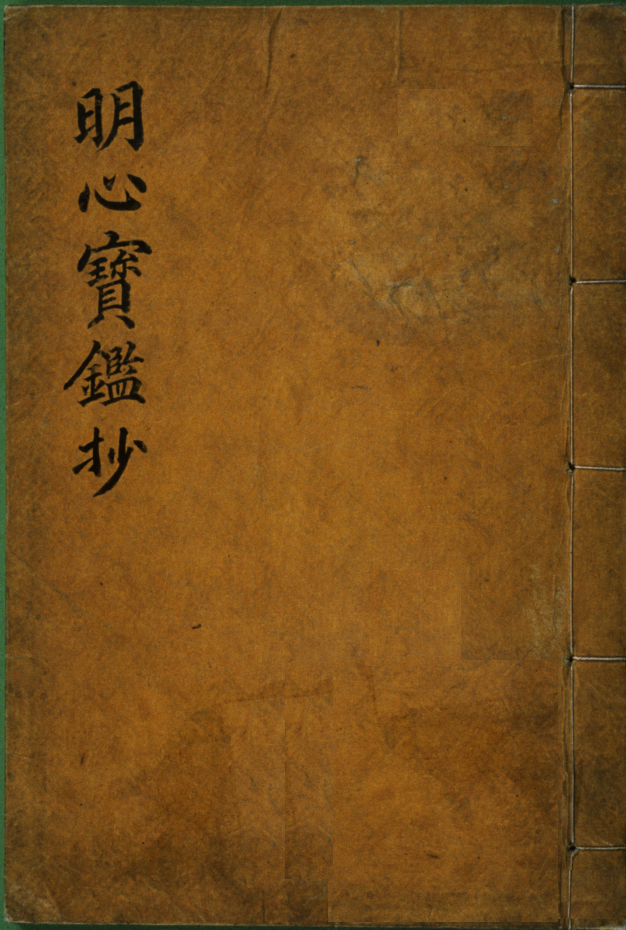 明心寶鑑抄